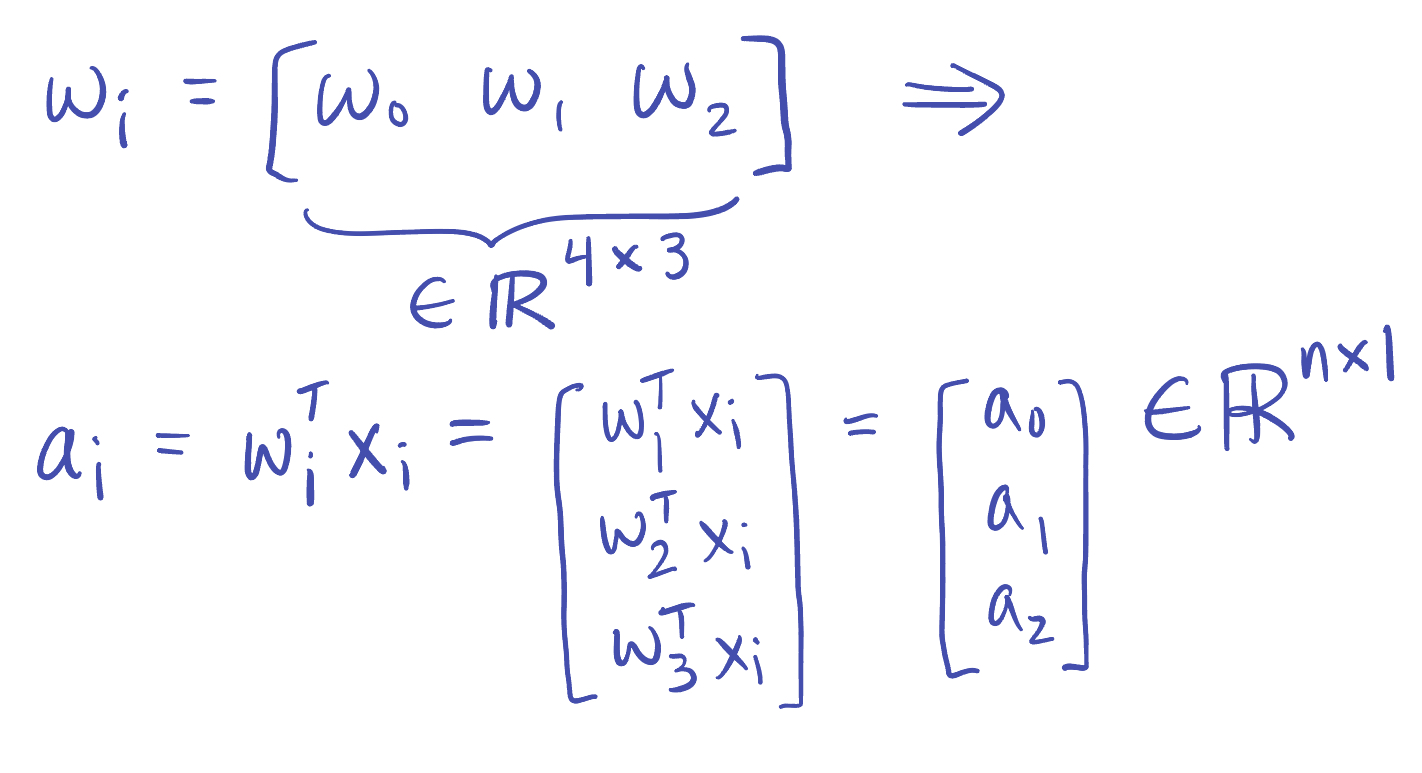 w_i = [w_0 w_1 w_2] ⇒
∈ ℝ^{4×3}
a_i = w_i^T x_i = [w_1^T x_i; w_2^T x_i; w_3^T x_i] = [a_0; a_1; a_2] ∈ ℝ^{n×1}